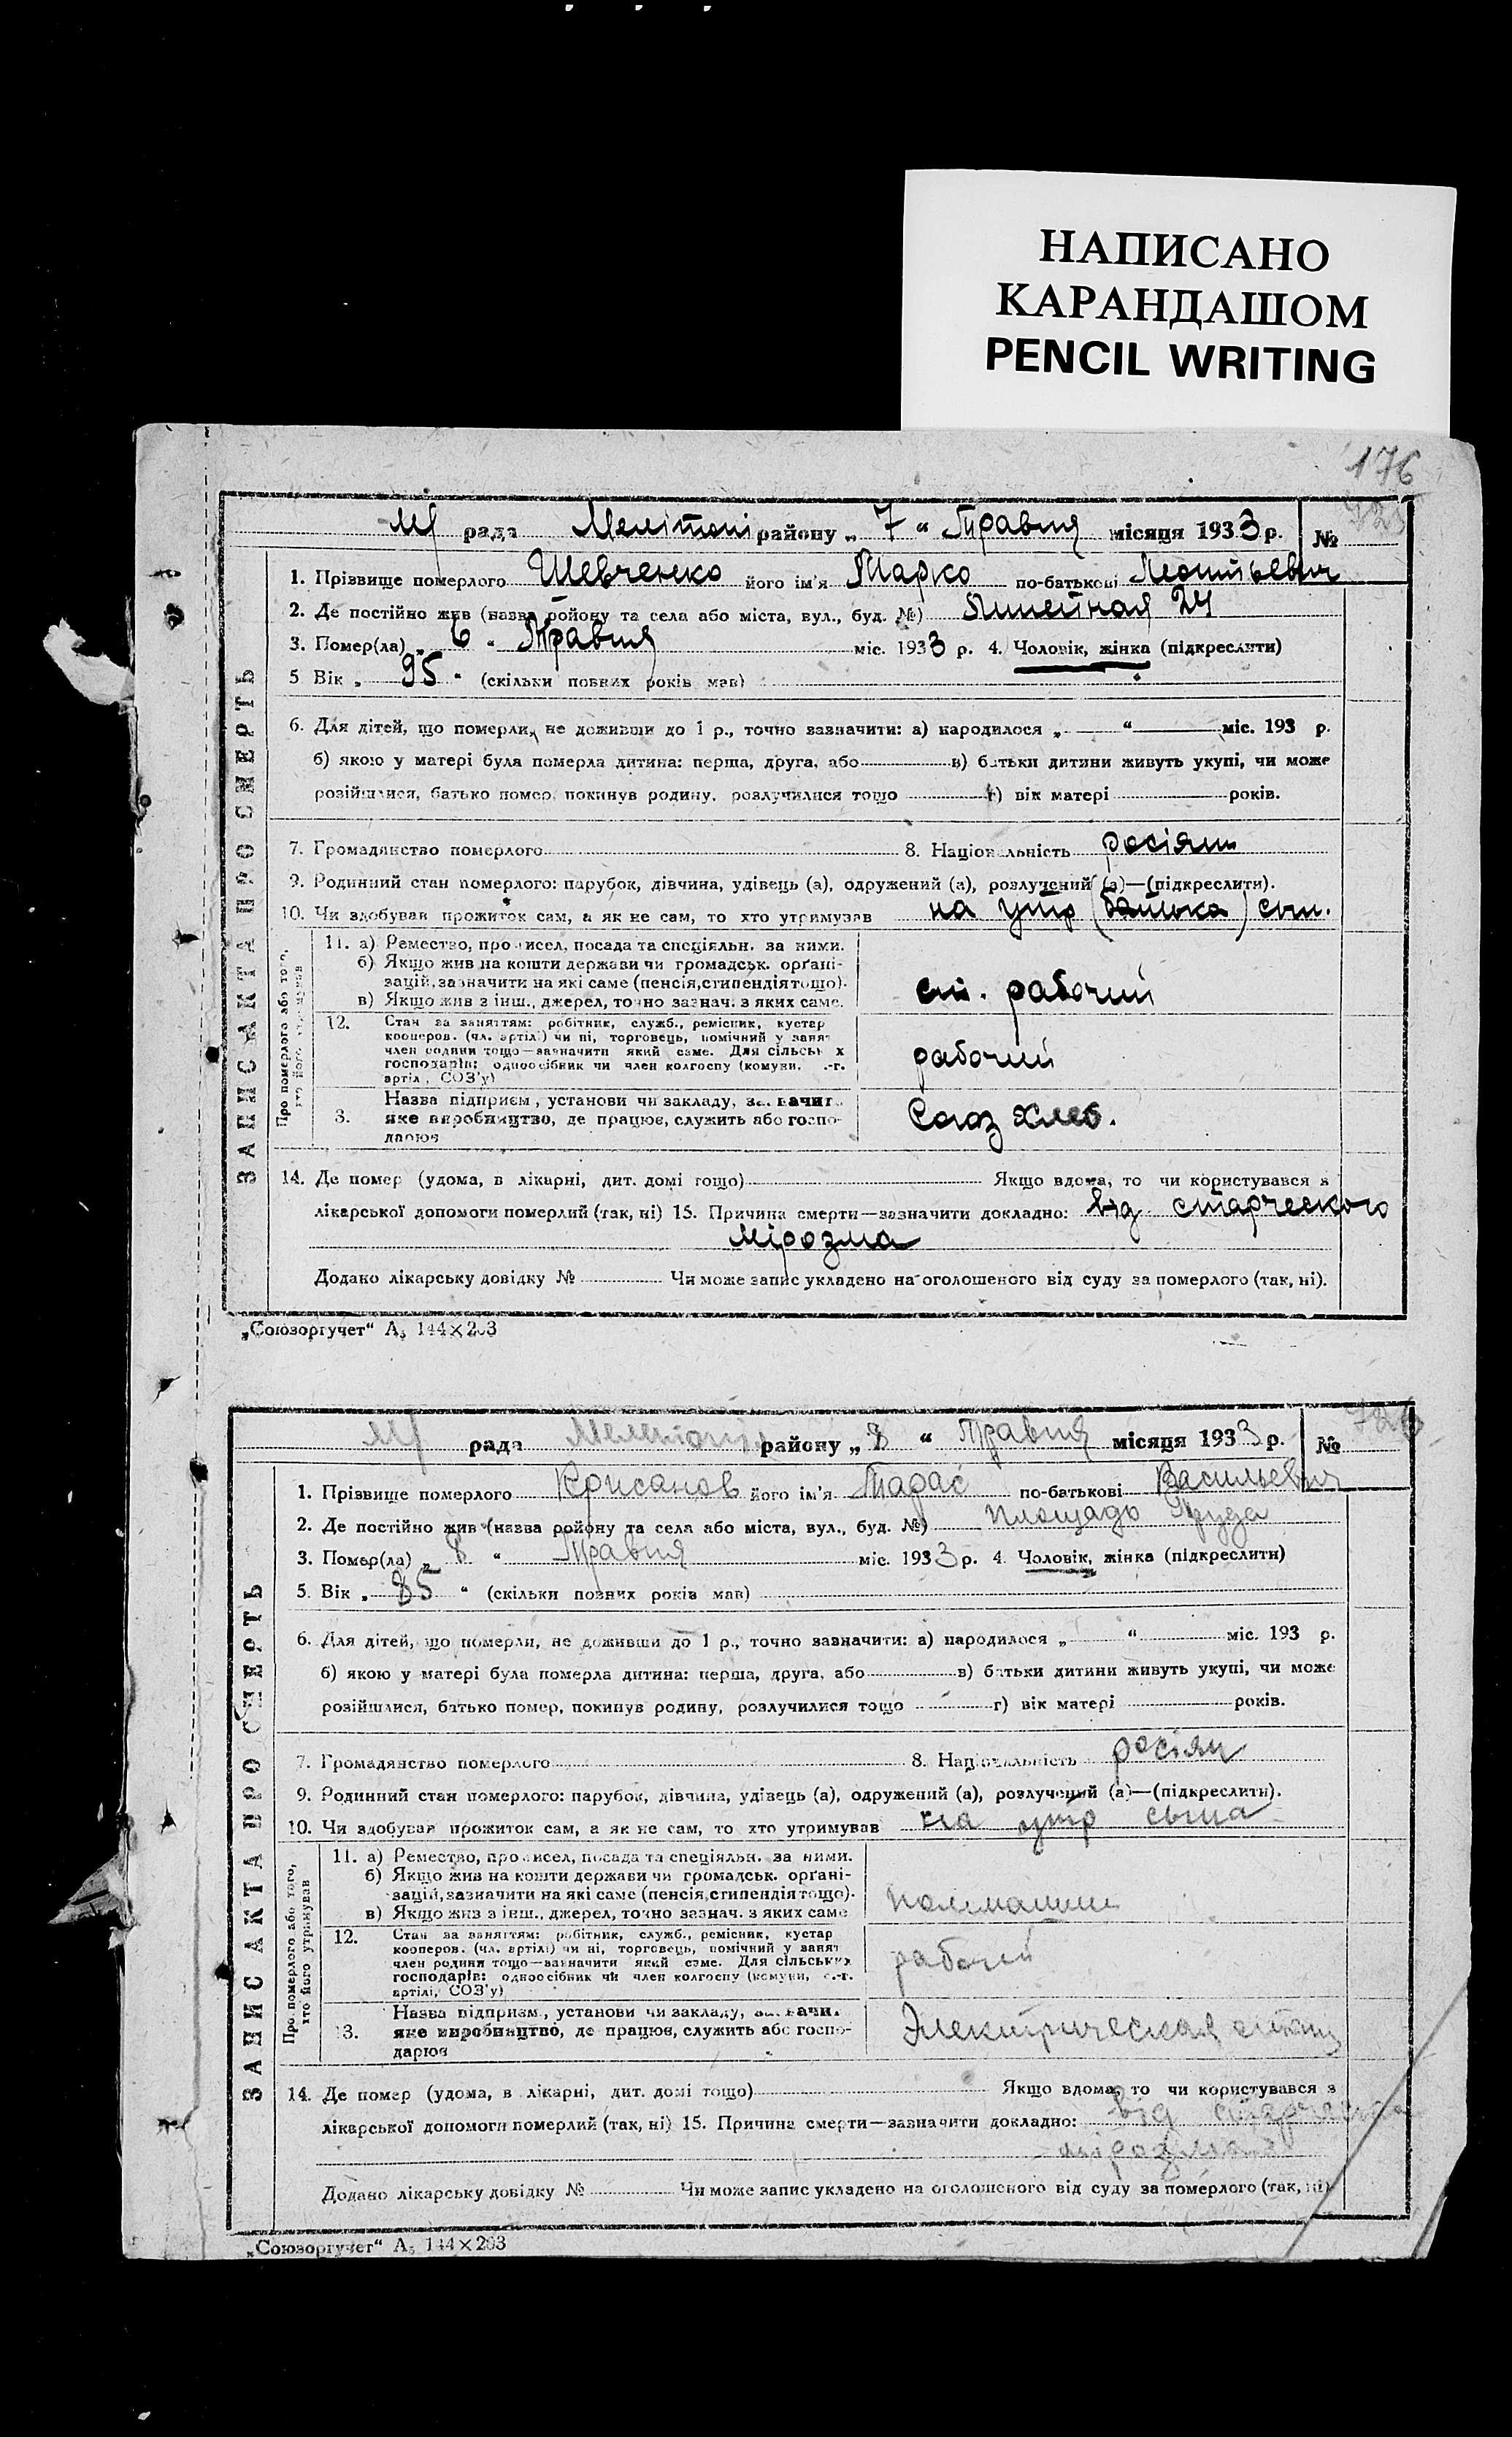 НАПИСАНО
КАРАНДАШОМ
PENCIL WRITING
176
МР рада Мелітопі району „ 7 “ Травня місяця 1933 р. №
1. Прізвище померлого Шевченко його ім'я Марко по-батькові Леонтьевич
2. Де постійно жив (назва ройону та села або міста, вул., буд. №) Линейная 24
3. Помер(ла) „ 6 “ Травня міс. 1933 р. 4. Чоловік, жінка (підкреслити)
5 Вік „ 95 “ (скільки повних років мав)
6. Для дітей, що померли, не доживши до 1 р., точно зазначити: а) народилося „ “ міс. 193 р.
б) якою у матері була померла дитина: перша, друга, або в) батьки дитини живуть укупі, чи може
розійшлися, батько помер, покинув родину, розлучилися тощо г) вік матері років.
7. Громадянство померлого 8. Національність росіянин
9. Родинний стан померлого: парубок, дівчина, удівець (а), одружений (а), розлучений (а)—(підкреслити).
10. Чи здобував прожиток сам, а як не сам, то хто утримував на утр (батька) сын.
11. а) Ремество, промисел, посада та спеціяльн. за ними.
б) Якщо жив на кошти держави чи громадськ. орґані-
зацій, зазначити на які саме (пенсія, стипендія тощо).
в) Якщо жив з інш., джерел, точно зазнач. з яких саме.
ст. рабочий
12. Стан за заняттям: робітник, служб., ремісник, кустар
кооперов. (чл. артілі) чи ні, торговець, помічний у занят
член родини тощо—зазначити який саме. Для сільськ х
господарів: одноосібник чи член колгоспу (комуни, .-г.
артіл , СОЗ'у)
рабочий
3. Назва підприєм , установи чи закладу, за. начит.
яке виробництво, де працює, служить або госпо-
дарює
Союз хлеб.
Про померлого або того,
хто його утримував
14. Де помер (удома, в лікарні, дит. домі тощо) Якщо вдома, то чи користувався з
лікарської допомоги померлий (так, ні) 15. Причина смерти—зазначити докладно: від старческого
мірозма
Додано лікарську довідку № Чи може запис укладено на оголошеного від суду за померлого (так, ні).
ЗАПИС АКТА ПРО СМЕРТЬ
„Союзоргучет“ А5 144×203
МР рада району „ 8 “ Травня місяця 1933 р. №
1. Прізвище померлого Крисанов його ім'я Тарас по-батькові Васильевич
2. Де постійно жив (назва ройону та села або міста, вул., буд. №) площадь Труда
3. Помер(ла) „ 8 “ Травня міс. 1933 р. 4. Чоловік, жінка (підкреслити)
5. Вік „ 85 “ (скільки повних років мав)
6. Для дітей, що померли, не доживши до 1 р., точно зазначити: а) народилося „ “ міс. 193 р.
б) якою у матері була померла дитина: перша, друга, або в) батьки дитини живуть укупі, чи може
розійшлися, батько помер, покинув родину, розлучилися тощо г) вік матері років.
7. Громадянство померлого 8. Національність росіян
9. Родинний стан померлого: парубок, дівчина, удівець (а), одружений (а), розлучений (а)—(підкреслити).
10. Чи здобував прожиток сам, а як не сам, то хто утримував на утр сына
11. а) Ремество, промисел, посада та спеціяльн. за ними.
б) Якщо жив на кошти держави чи громадськ. орґані-
зацій, зазначити на які саме (пенсія, стипендія тощо).
в) Якщо жив з інш., джерел, точно зазнач. з яких саме
12. Стан за заняттям: робітник, служб., ремісник, кустар
кооперов. (чл. артілі) чи ні, торговець, помічний у занят
член родини тощо—зазначити який саме. Для сільських
господарів: одноосібник чи член колгоспу (комуни, с.-г.
артілі, СОЗ'у)
рабочий
13. Назва підприєм , установи чи закладу, за. начи.
яке виробництво, де працює, служить або госпо-
дарює
Электрическая станц
Про померлого або того,
хто його утримував
14. Де помер (удома, в лікарні, дит. домі тощо) Якщо вдома, то чи користувався з
лікарської допомоги померлий (так, ні) 15. Причина смерти—зазначити докладно: від старческо
мірозма
Додано лікарську довідку № Чи може запис укладено на оголошеного від суду за померлого (так, ні)
ЗАПИС АКТА ПРО СМЕРТЬ
„Союзоргучет“ А5 144×203